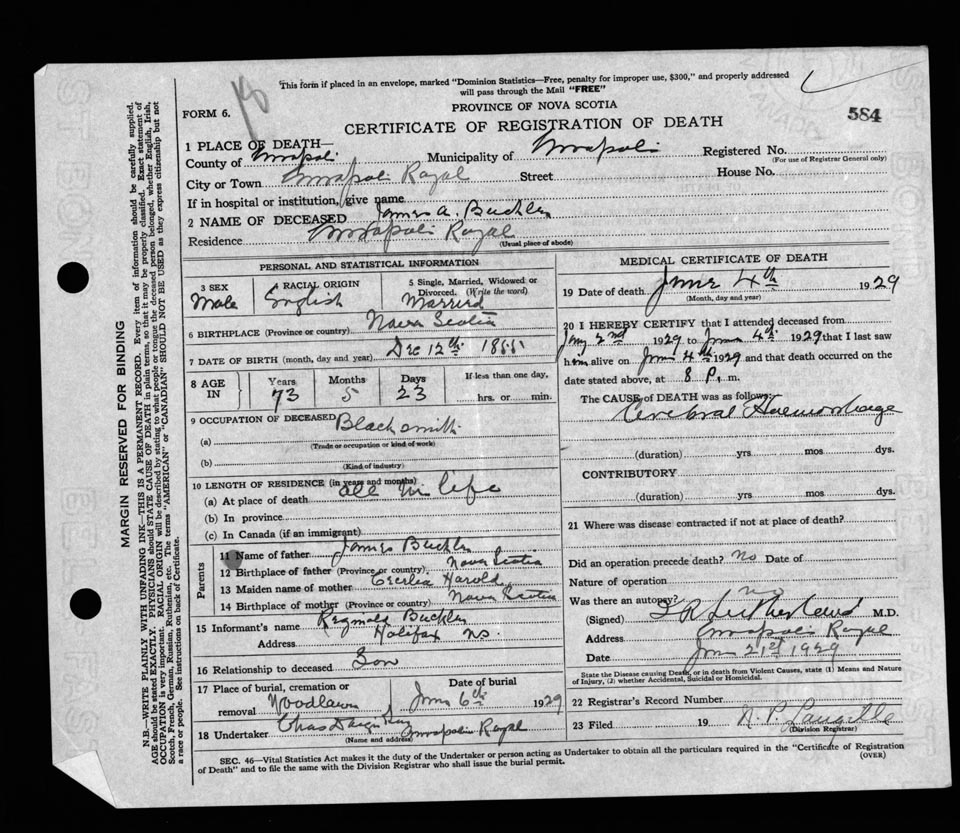 This form if placed in an envelope, marked "Dominion Statistics—Free, penalty for improper use, $300," and properly addressed
will pass through the Mail "FREE"
FORM 6.
PROVINCE OF NOVA SCOTIA
584
CERTIFICATE OF REGISTRATION OF DEATH
1 PLACE OF DEATH—
County of Annapolis Municipality of Annapolis Registered No.
(For use of Registrar General only)
City or Town Annapolis Royal Street House No.
If in hospital or institution, give name
2 NAME OF DECEASED James A. Buckler
Residence Annapolis Royal
(Usual place of abode)
PERSONAL AND STATISTICAL INFORMATION
3 SEX 4 RACIAL ORIGIN 5 Single, Married, Widowed or
Divorced. (Write the word)
Male English Married
6 BIRTHPLACE (Province or country) Nova Scotia
7 DATE OF BIRTH (month, day and year) Dec 12th 1855
8 AGE IN Years Months Days If less than one day,
73 5 23 hrs. or min.
9 OCCUPATION OF DECEASED Blacksmith
(a)
(Trade or occupation or kind of work)
(b)
(Kind of industry)
10 LENGTH OF RESIDENCE (in years and months)
(a) At place of death all his life
(b) In province
(c) In Canada (if an immigrant)
Parents
11 Name of father James Buckler
12 Birthplace of father (Province or country) Nova Scotia
13 Maiden name of mother Harold
14 Birthplace of mother (Province or country) Nova Scotia
15 Informant's name Reginald Buckler
Address Halifax NS.
16 Relationship to deceased Son
17 Place of burial, cremation or Date of burial
removal Woodlawn June 6th 1929
18 Undertaker Chas Annapolis Royal
(Name and address)
MEDICAL CERTIFICATE OF DEATH
19 Date of death June 4th 1929
(Month, day and year)
20 I HEREBY CERTIFY that I attended deceased from
2nd 1929 to June 4th 1929 that I last saw
him alive on June 4th 1929 and that death occurred on the
date stated above, at 8 P. m.
The CAUSE of DEATH was as follows:
Cerebral Haemorrhage
(duration) yrs mos dys.
CONTRIBUTORY
(duration) yrs mos dys.
21 Where was disease contracted if not at place of death?
Did an operation precede death? No Date of
Nature of operation
Was there an autopsy? no
(Signed) Sutherland M.D.
Address Annapolis Royal
Date June 21st 1929
State the Disease causing Death, or in death from Violent Causes, state (1) Means and Nature
of Injury, (2) whether Accidental, Suicidal or Homicidal.
22 Registrar's Record Number
23 Filed 19
(Division Registrar)
SEC. 46—Vital Statistics Act makes it the duty of the Undertaker or person acting as Undertaker to obtain all the particulars required in the "Certificate of Registration
of Death" and to file the same with the Division Registrar who shall issue the burial permit.
(OVER)
MARGIN RESERVED FOR BINDING
N.B.—WRITE PLAINLY WITH UNFADING INK—THIS IS A PERMANENT RECORD. Every item of information should be carefully supplied.
AGE should be stated EXACTLY. PHYSICIANS should STATE CAUSE OF DEATH in plain terms, so that it may be properly classified. Exact statement of
OCCUPATION is very important. RACIAL ORIGIN will be described by stating to what people or tongue the deceased person belonged, whether English, Irish,
Scotch, French, German, Russian, Ruthenian, etc. The terms "AMERICAN" or "CANADIAN" SHOULD NOT BE USED as they express citizenship but not
a race or people. See instructions on back of Certificate.